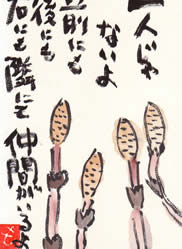 一人じゃ
ないよ
前にも
後にも
右にも隣にも
仲間がいるよ